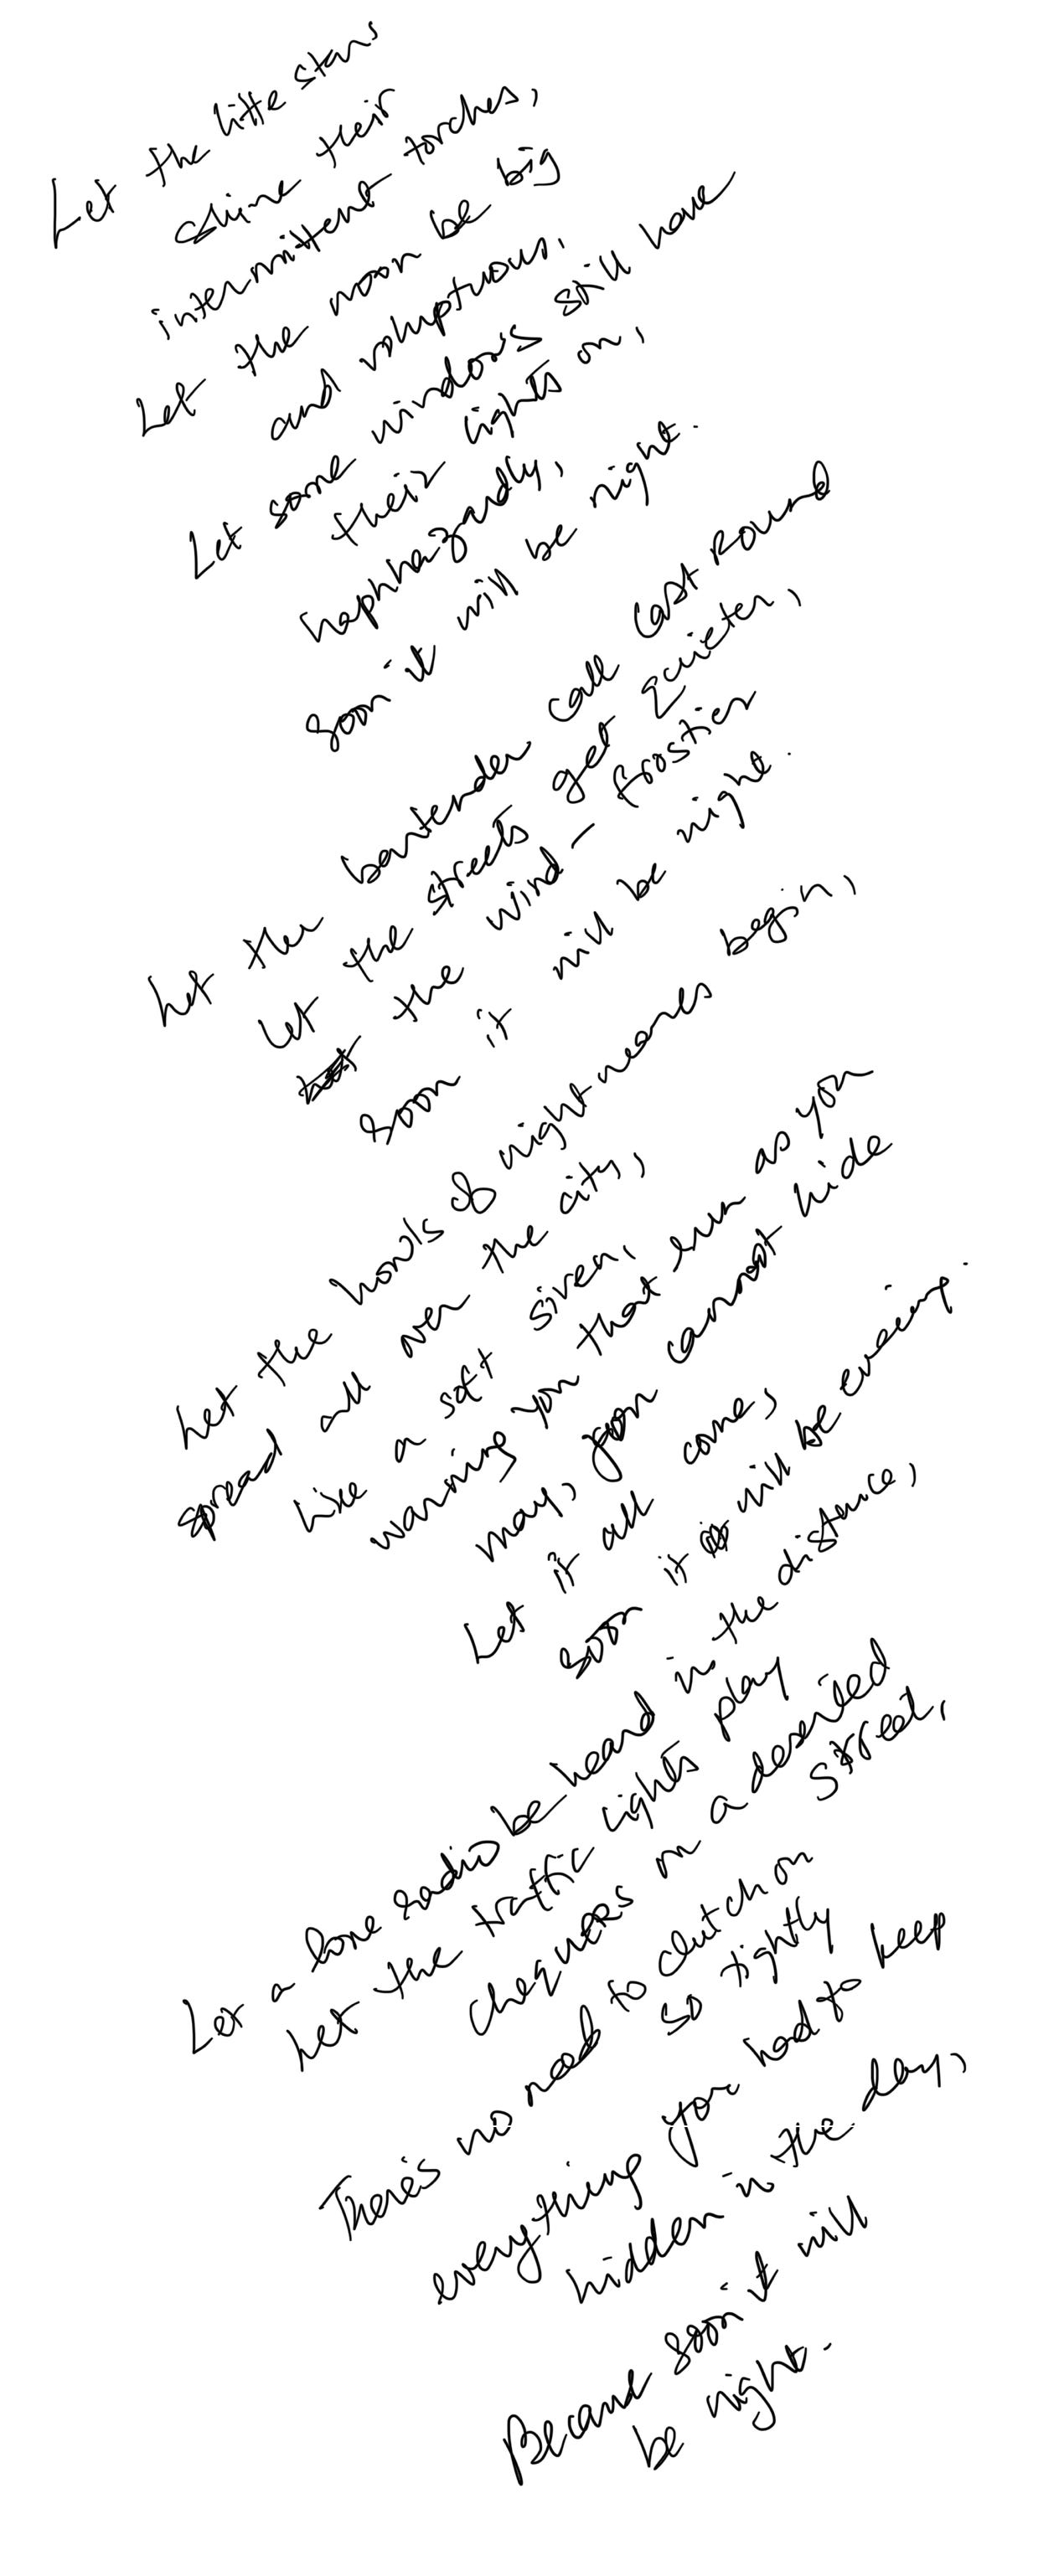 Let the little stars
shine their
intermittent torches,
Let the moon be big
and voluptuous,
Let some windows still have
their lights on,
haphhazardly,
soon it will be night.
Let the bartender call last round
Let the streets get quieter,
the wind - frostier
soon it will be night.
Let the howls of nightmares begin,
spread all over the city,
like a soft siren,
warning you that run as you
may, you cannot hide
Let it all come,
soon it will be evening.
Let a lone radio be heard in the distance,
Let the traffic lights play
chequers on a deserted
street,
There's no need to clutch on
so tightly
everything you had to keep
hidden in the day,
Because soon it will
be night.